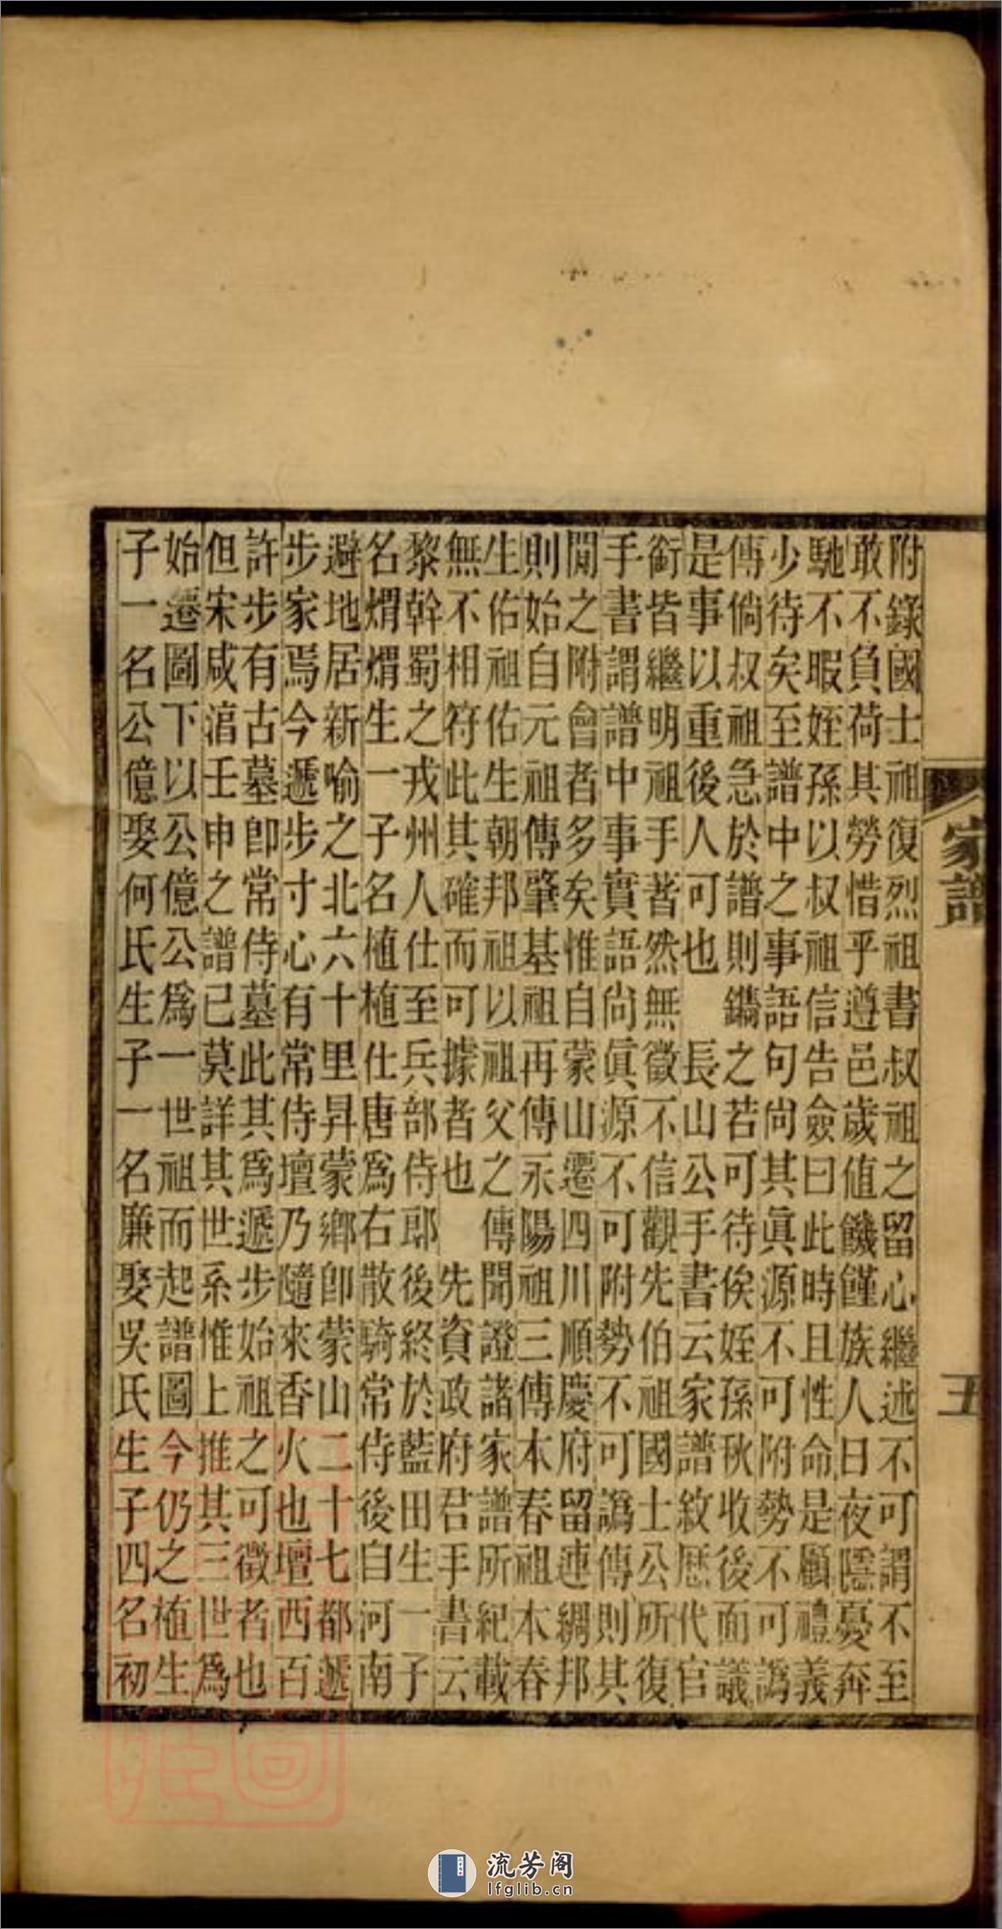 家譜
五
附錄國士祖復烈祖書叔祖之留心繼述不可謂不至
敢不負荷其勞惜乎遵邑歲值饑饉族人日夜隱憂奔
馳不暇姪孫以叔祖信告僉曰此時且性命是顧禮義
少待矣至譜中之事語句尚其眞源不可附勢不可譌
傳倘叔祖急於譜則鐫之若可待俟姪孫秋收後面議
是事以重後人可也　長山公手書云家譜敘歷代官
銜皆繼明祖手著然無徵不信觀先伯祖國士公所復
手書謂譜中事實語尚眞源不可附勢不可譌傳則其
閒之附會者多矣惟自蒙山遷四川順慶府留連綢邦
則始自元祖傳肇基祖再傳永陽祖三傳本春祖本春
生佑祖佑生朝邦祖以祖父之傳聞證諸家譜所紀載
無不相符此其確而可據者也　先資政府君手書云
黎幹蜀之戎州人仕至兵部侍郎後終於藍田生一子
名熠熠生一子名植植仕唐爲右散騎常侍後自河南
避地居新喻之北六十里昇蒙鄉卽蒙山二十七都遞
步家焉今遞步寸心有常侍壇乃隨來香火也壇西百
許步有古墓卽常侍墓此其爲遞步始祖之可徵者也
但宋咸淯壬申之譜已莫詳其世系惟上推其三世爲
始遷圖下以公億公爲一世祖而起譜圖今仍之植生
子一名公億娶何氏生子一名廉娶吳氏生子四名初
流芳阁
lfglib.cn